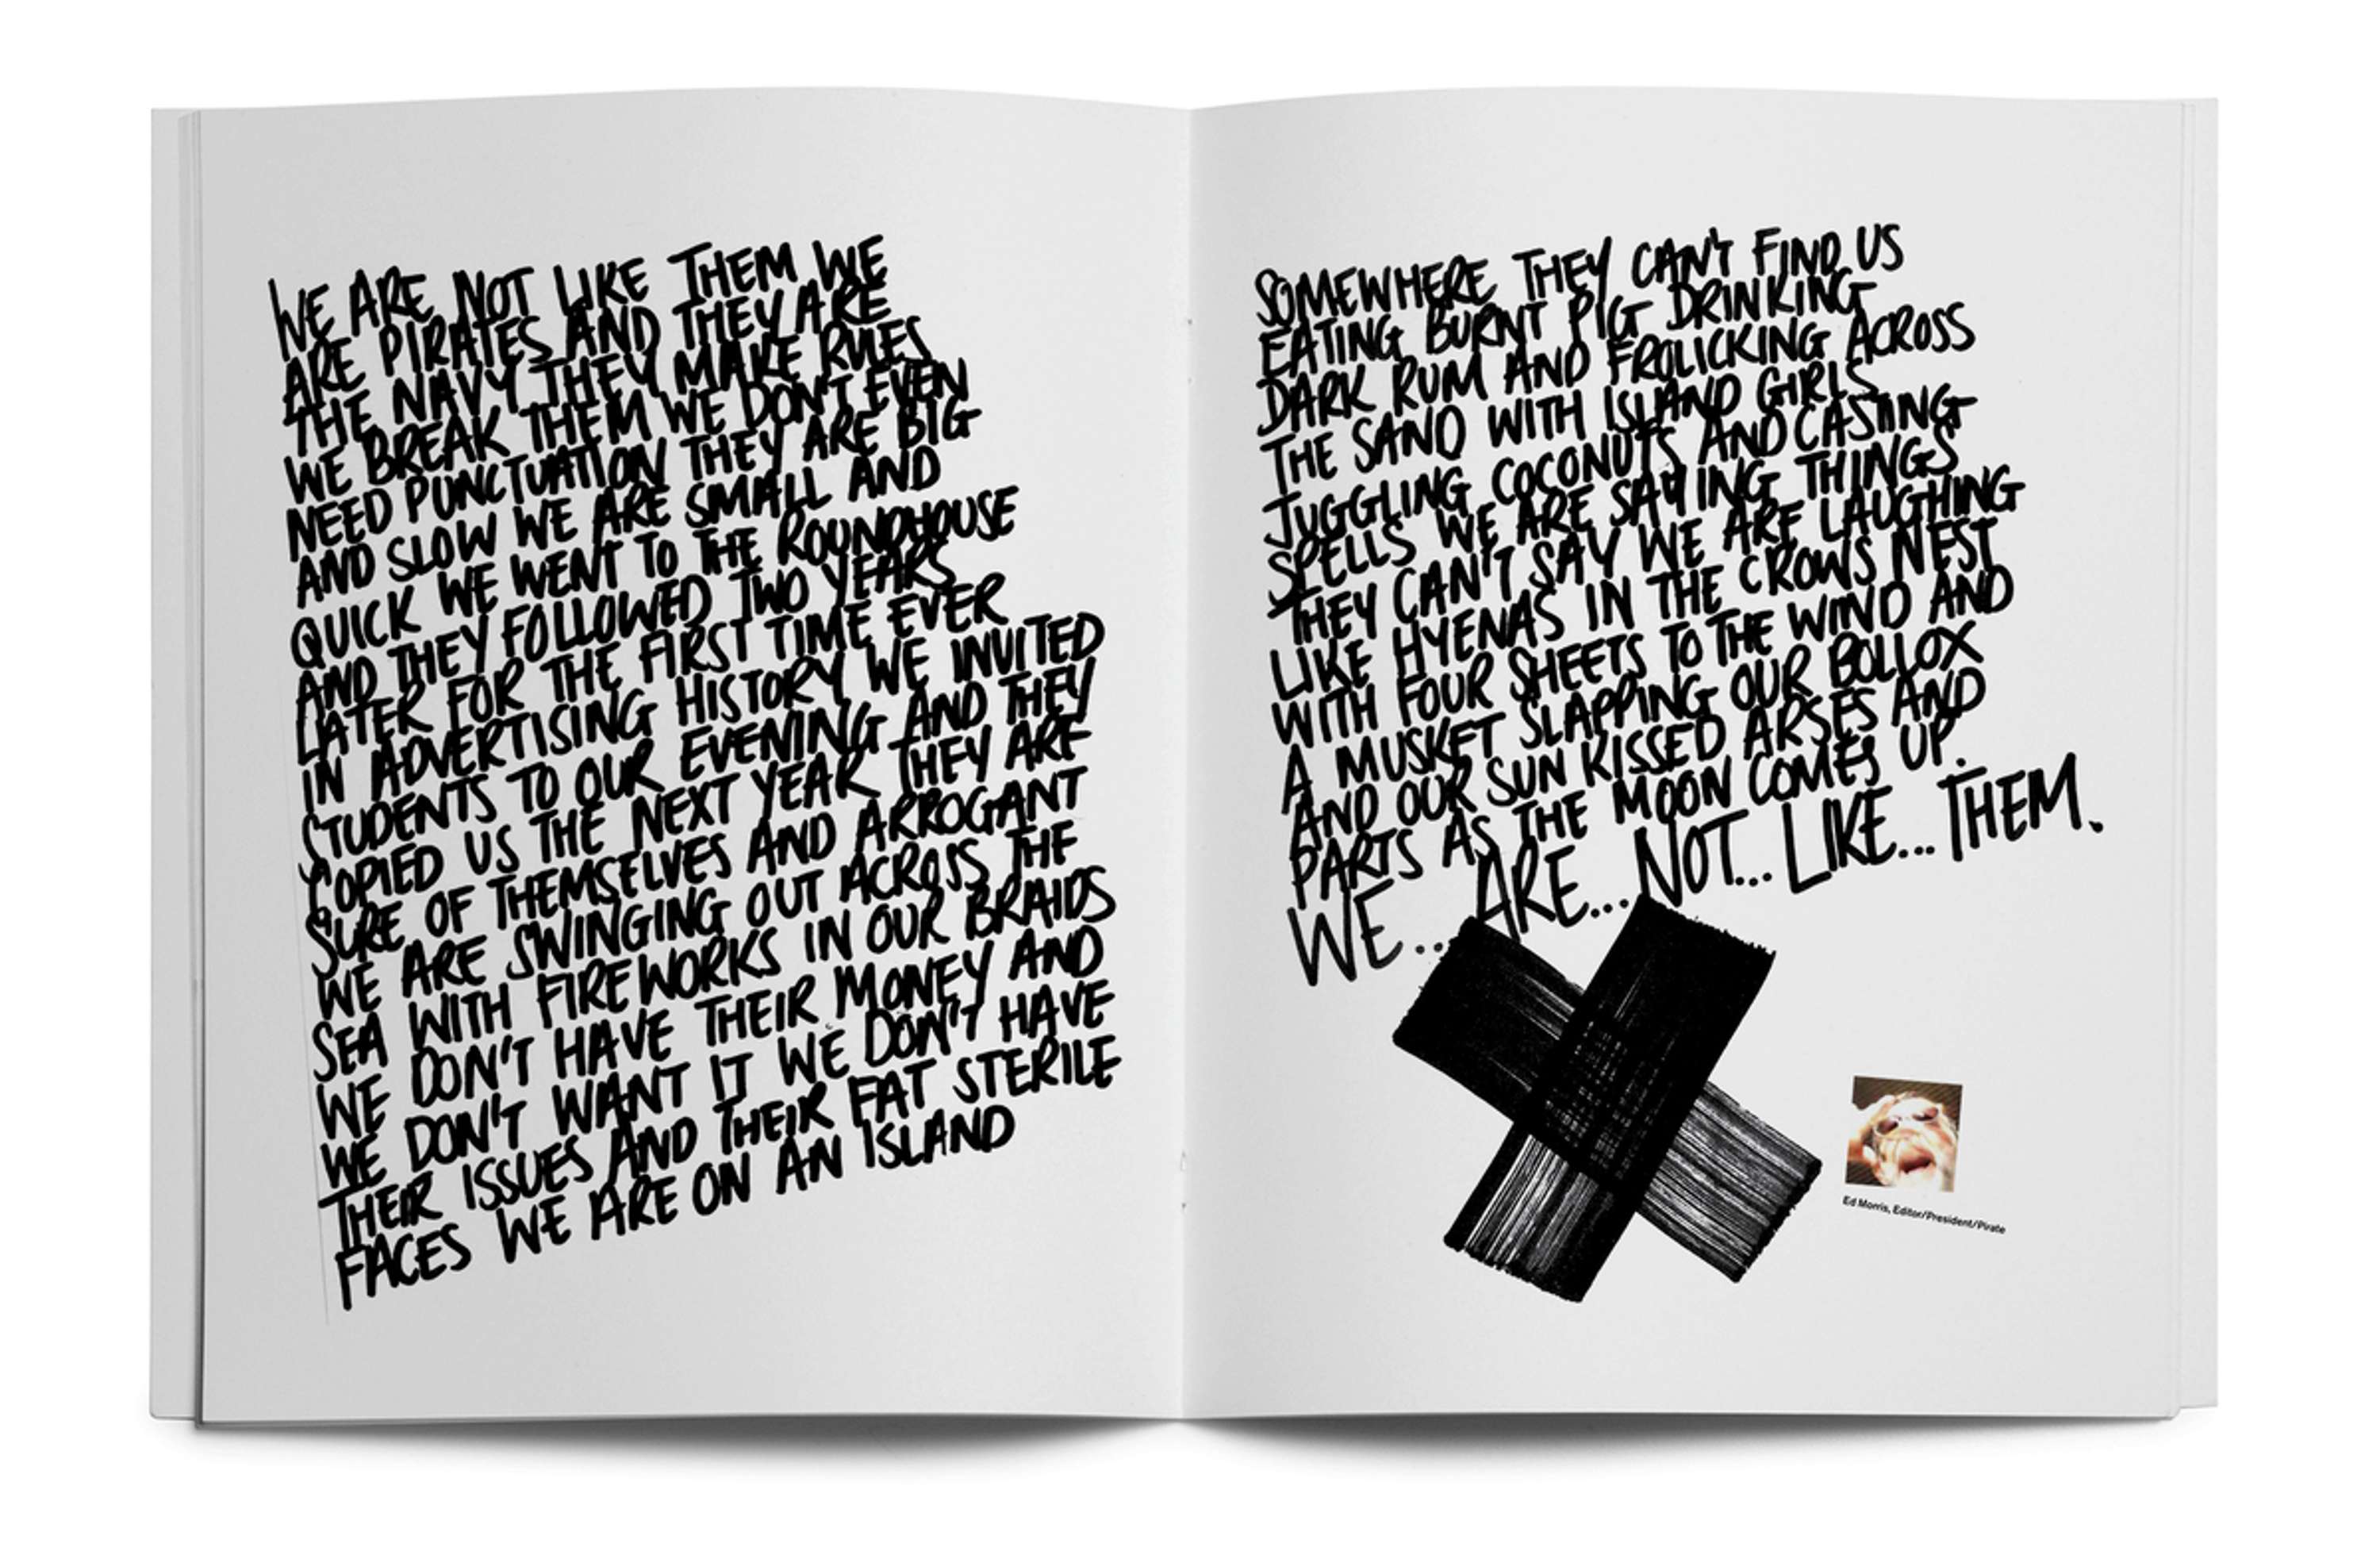 WE ARE NOT LIKE THEM WE
ARE PIRATES AND THEY ARE
THE NAVY THEY MAKE RULES
WE BREAK THEM WE DON'T EVEN
NEED PUNCTUATION THEY ARE BIG
AND SLOW WE ARE SMALL AND
QUICK WE WENT TO THE ROUNDHOUSE
AND THEY FOLLOWED TWO YEARS
LATER FOR THE FIRST TIME EVER
IN ADVERTISING HISTORY WE INVITED
STUDENTS TO OUR EVENING AND THEY
COPIED US THE NEXT YEAR THEY ARE
SURE OF THEMSELVES AND ARROGANT
WE ARE SWINGING OUT ACROSS THE
SEA WITH FIREWORKS IN OUR BRAIDS
WE DON'T HAVE THEIR MONEY AND
WE DON'T WANT IT WE DON'T HAVE
THEIR ISSUES AND THEIR FAT STERILE
FACES WE ARE ON AN ISLAND
SOMEWHERE THEY CAN'T FIND US
EATING BURNT PIG DRINKING
DARK RUM AND FROLICKING ACROSS
THE SAND WITH ISLAND GIRLS
JUGGLING COCONUTS AND CASTING
SPELLS WE ARE SAYING THINGS
THEY CAN'T SAY WE ARE LAUGHING
LIKE HYENAS IN THE CROWS NEST
WITH FOUR SHEETS TO THE WIND AND
A MUSKET SLAPPING OUR BOLLOX
AND OUR SUN KISSED ARSES AND
PARTS AS THE MOON COMES UP.
WE... ARE... NOT... LIKE... THEM.
Ed Morris, Editor/President/Pirate